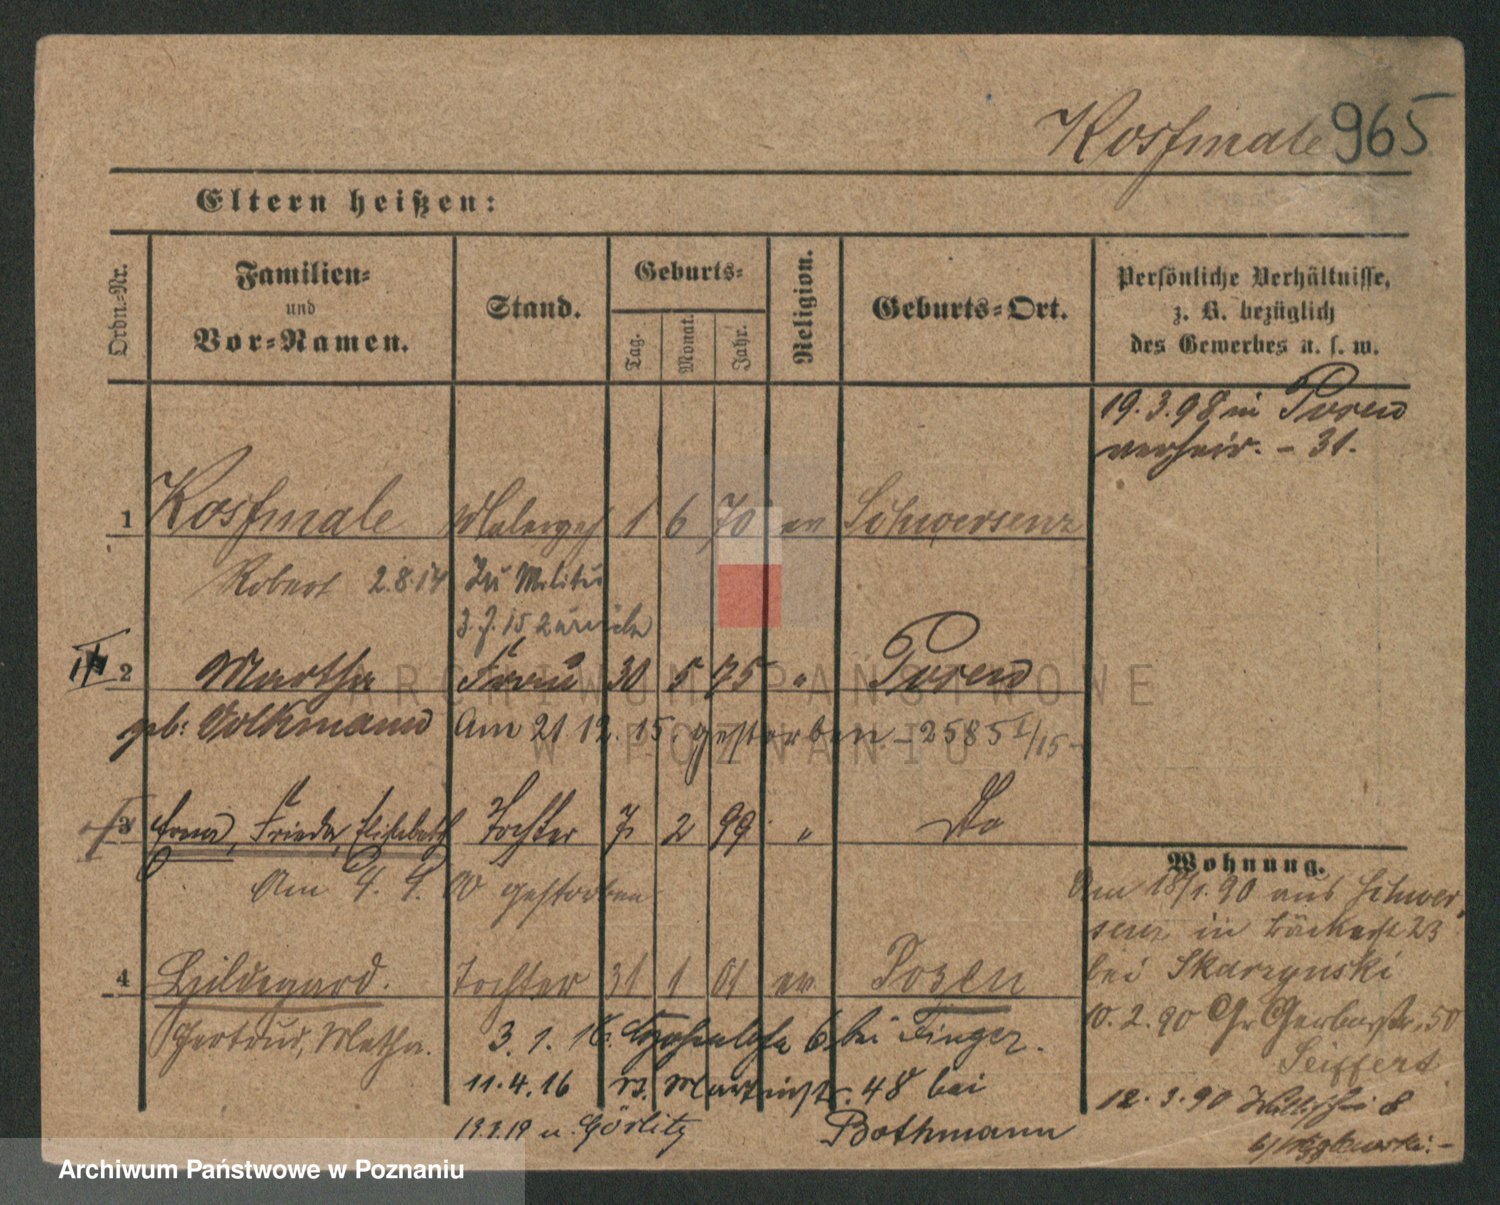 Kossmale 965
Eltern heißen:
Ordn.-Nr.
Familien- und Vor-Namen.
Stand.
Geburts-
Tag. Monat. Jahr.
Religion.
Geburts-Ort.
Persönliche Verhältnisse, z. B. bezüglich des Gewerbes u. s. w.
19. 3. 98 in Posen
verheir. - 31.
1 Kossmale Malergeh 1 6 70 ev Schwersenz
Robert 2.8.14 Zu Militär
3. 7. 15 zurück
2 Martha Frau 30 5 75 " Posen
geb: Volkmann Am 21 12. 15. gestorben - 2585 I/15 -
3 Erna, Frieda, Elisabeth Tochter 7 2 99 " Do
Am 9. 9. 00 gestorben
4 Hildegard. Tochter 31 1 01 ev. Posen
Gertrud, Metha.
3. 1. 16. 6 bei Finger.
11. 4. 16 n. Martinstr. 48 bei
Bothmann
19.3.19 n. Görlitz
Wohnung.
Am 18/1. 90 aus Schwer-
senz in Bäckerst 23
bei Skarzynski
10. 2. 90 Gr Gerberstr. 50
Seiffert
12. 3. 90 8
ARCHIWUM PAŃSTWOWE
W POZNANIU
Archiwum Państwowe w Poznaniu